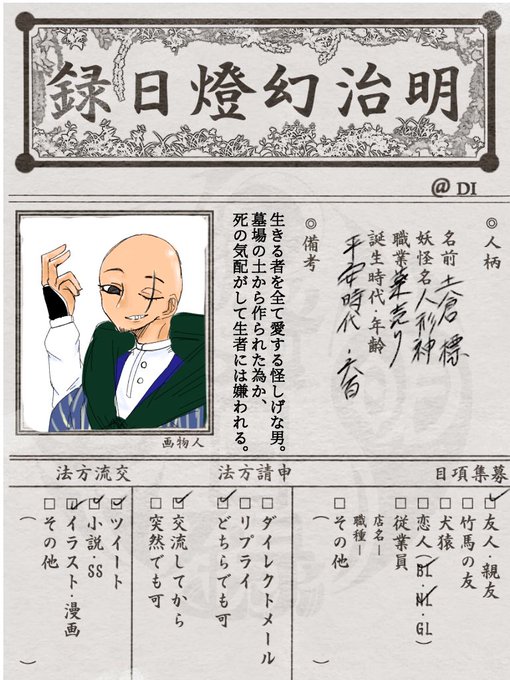 明治幻燈日録
@DI
◎人柄
名前 土倉 標
妖怪名 人形神
職業 薬売り
誕生時代・年齢
平安時代・六百
◎備考
生きる者を全て愛する怪しげな男。
墓場の土から作られた為か、
死の気配がして生者には嫌われる。
画物人
募集項目
□友人・親友
□竹馬の友
□犬猿
□恋人(BL・NL・GL)
□従業員
店名―
職種―
□その他
( )
申請方法
□ダイレクトメール
□リプライ
□どちらでも可
□交流してから
□突然でも可
交流方法
□ツイート
□小説・SS
□イラスト・漫画
□その他
( )